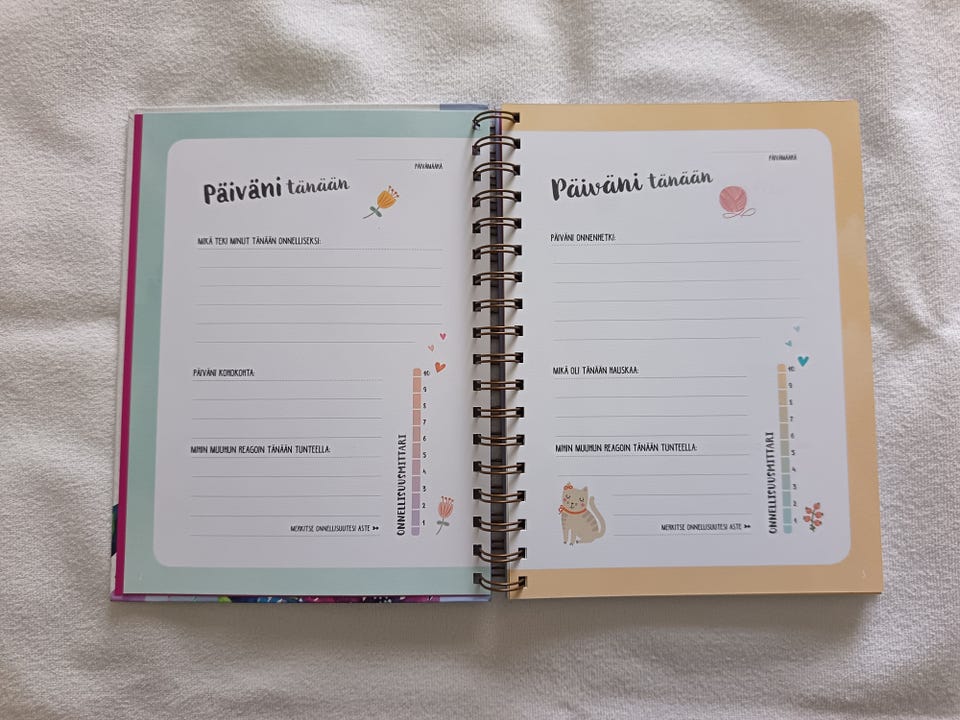 PÄIVÄMÄÄRÄ
Päiväni tänään
MIKÄ TEKI MINUT TÄNÄÄN ONNELLISEKSI:
PÄIVÄNI KOHOKOHTA:
MIHIN MUUHUN REAGOIN TÄNÄÄN TUNTEELLA:
MERKITSE ONNELLISUUTESI ASTE
ONNELLISUUSMITTARI
10
9
8
7
6
5
4
3
2
1
PÄIVÄMÄÄRÄ
Päiväni tänään
PÄIVÄNI ONNENHETKI:
MIKÄ OLI TÄNÄÄN HAUSKAA:
MIHIN MUUHUN REAGOIN TÄNÄÄN TUNTEELLA:
MERKITSE ONNELLISUUTESI ASTE
ONNELLISUUSMITTARI
10
9
8
7
6
5
4
3
2
1
5